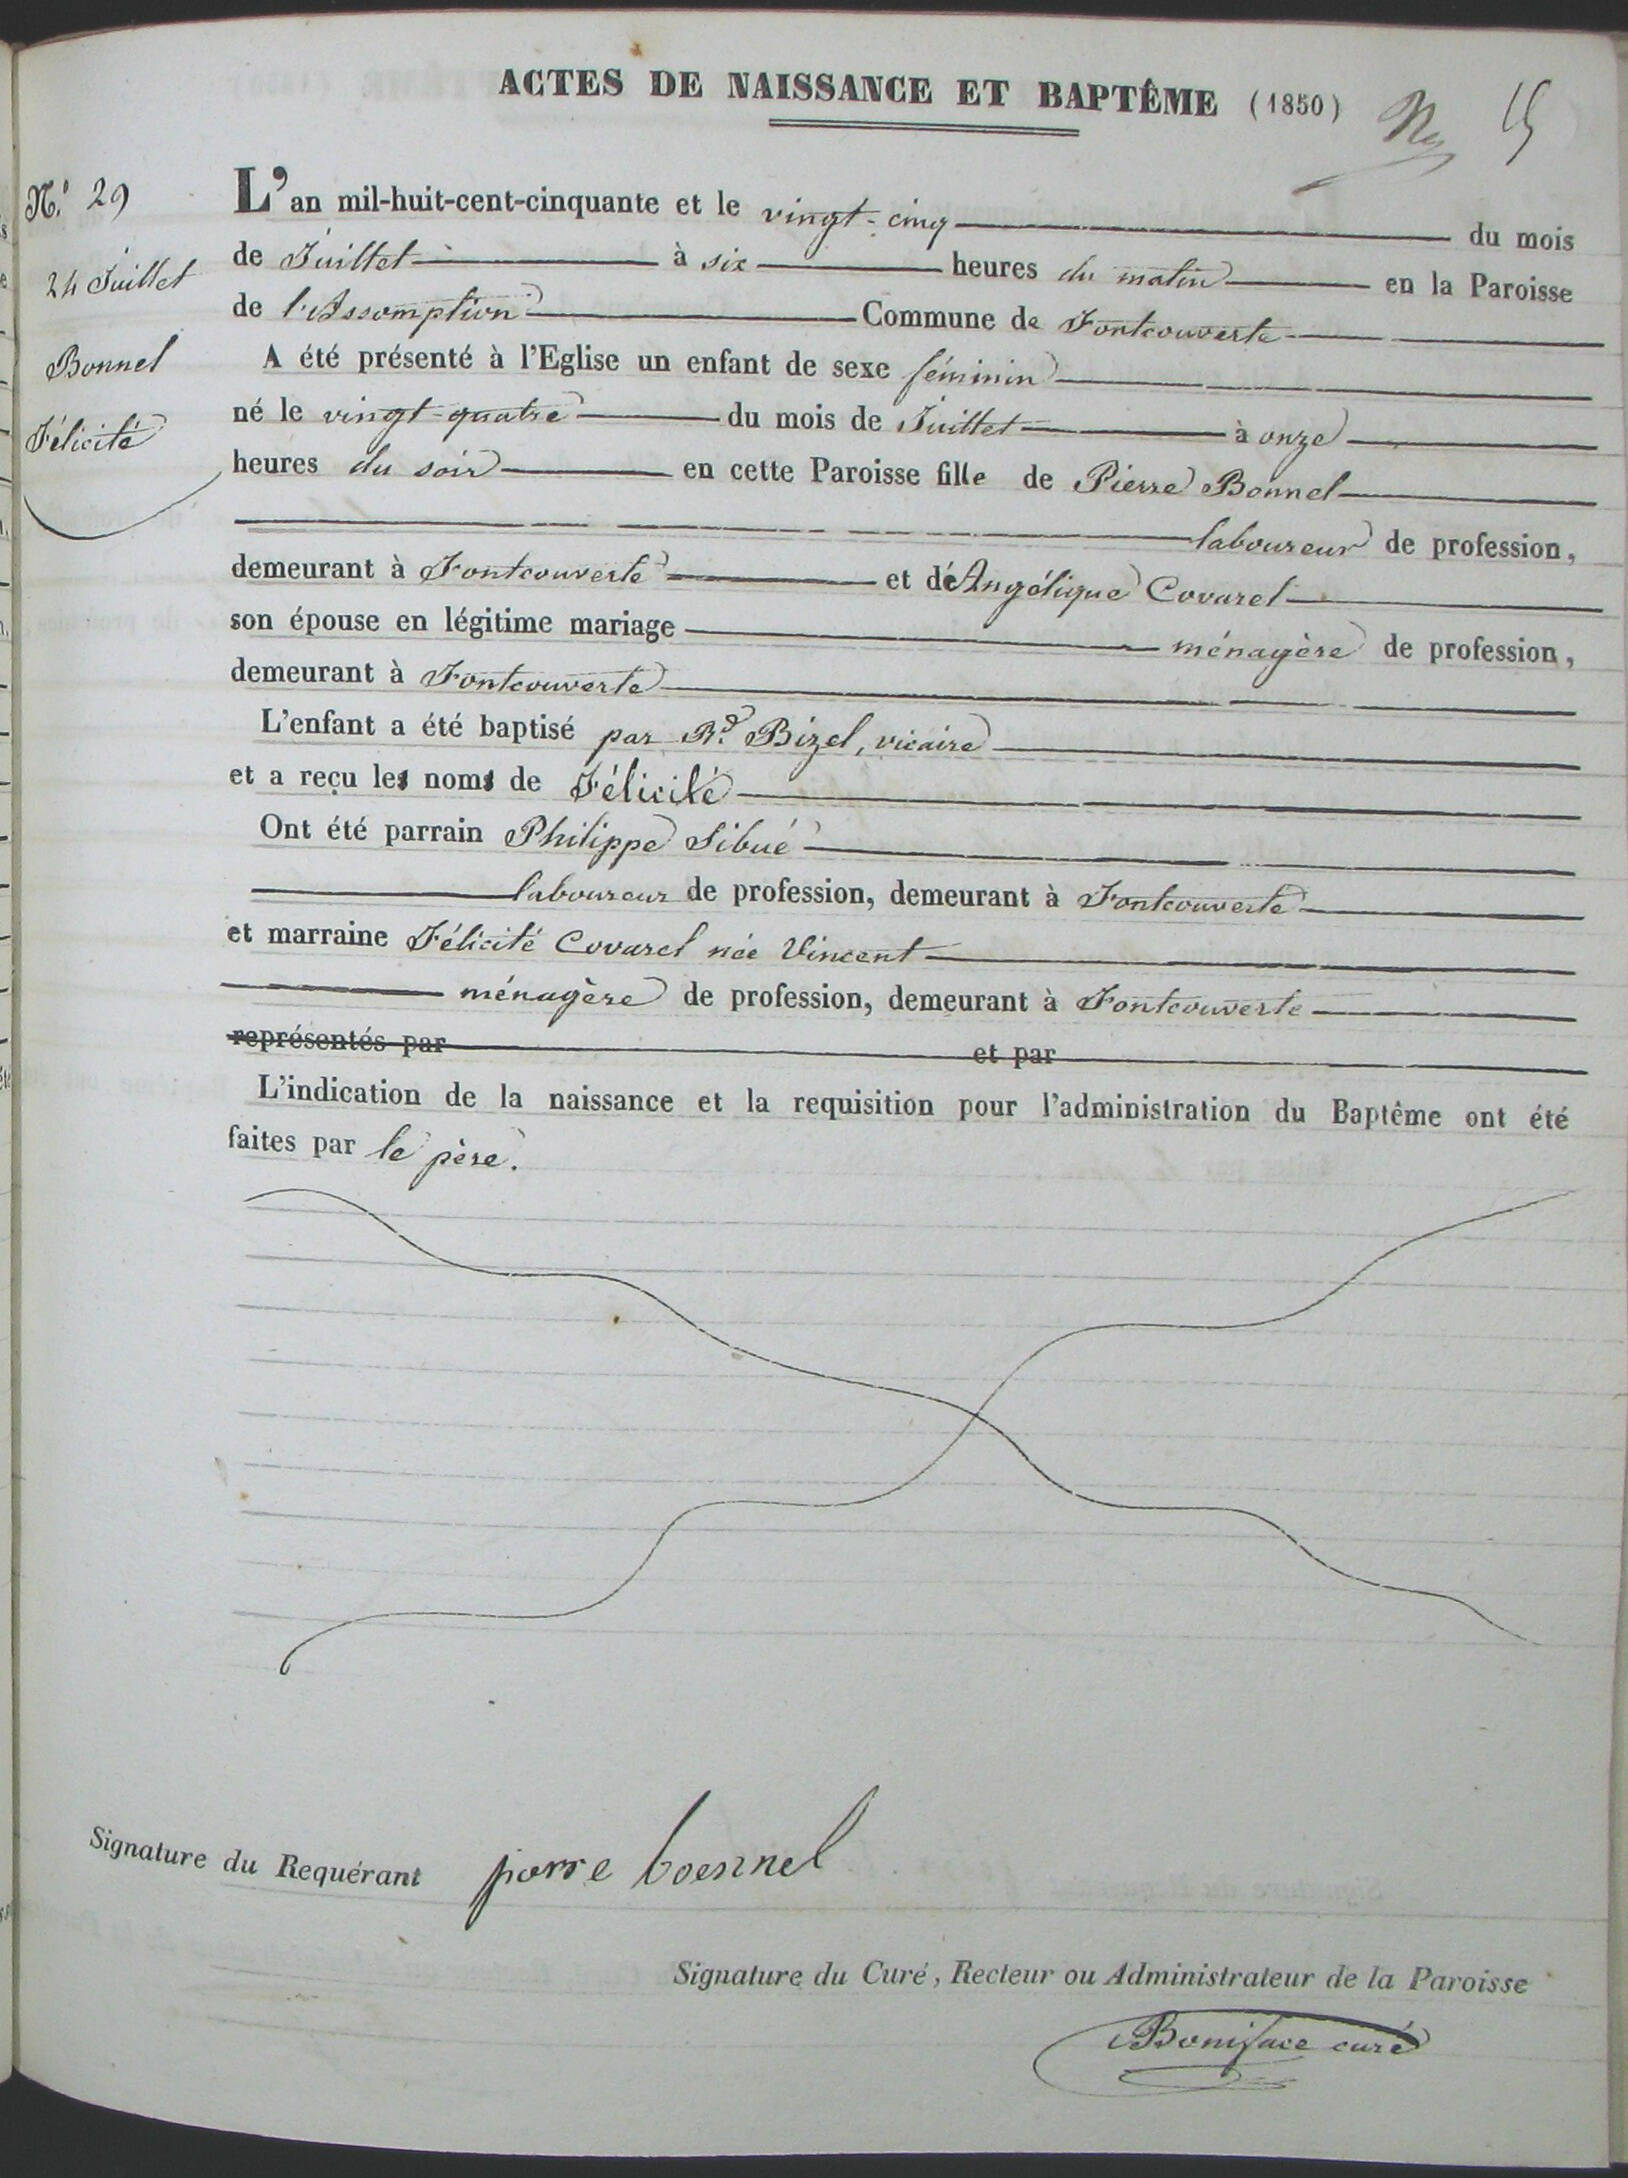 ACTES DE NAISSANCE ET BAPTÊME (1850)
15
N.° 29
24 Juillet
Bonnel
Félicité
L'an mil-huit-cent-cinquante et le vingt-cinq du mois
de Juillet à six heures du matin en la Paroisse
de l'Assomption Commune de Fontcouverte
A été présenté à l'Eglise un enfant de sexe féminin
né le vingt-quatre du mois de Juillet à onze
heures du soir en cette Paroisse fille de Pierre Bonnel
laboureur de profession,
demeurant à Fontcouverte et d'Angélique Covarel
son épouse en légitime mariage ménagère de profession,
demeurant à Fontcouverte
L'enfant a été baptisé par Rd. Bizel, vicaire
et a reçu les noms de Félicité
Ont été parrain Philippe Sibué
laboureur de profession, demeurant à Fontcouverte
et marraine Félicité Covarel née Vincent
ménagère de profession, demeurant à Fontcouverte
représentés par et par
L'indication de la naissance et la requisition pour l'administration du Baptême ont été
faites par le père.
Signature du Requérant pierre boennel
Signature du Curé, Recteur ou Administrateur de la Paroisse
Boniface curé